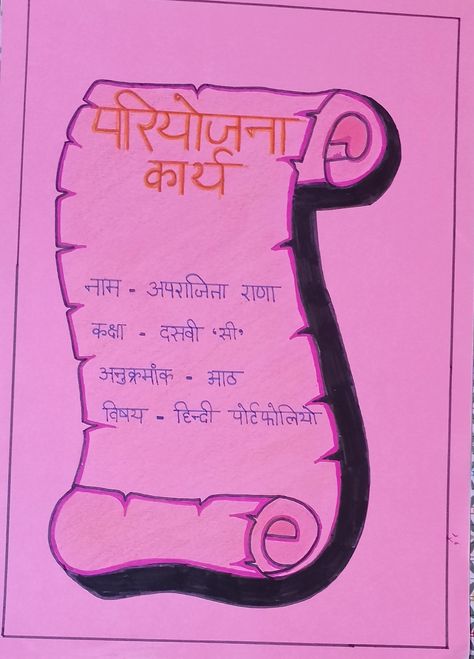 परियोजना
कार्य
नाम - अपराजिता राणा
कक्षा - दसवी 'सी'
अनुक्रमांक - आठ
विषय - हिन्दी पोर्टफोलियो